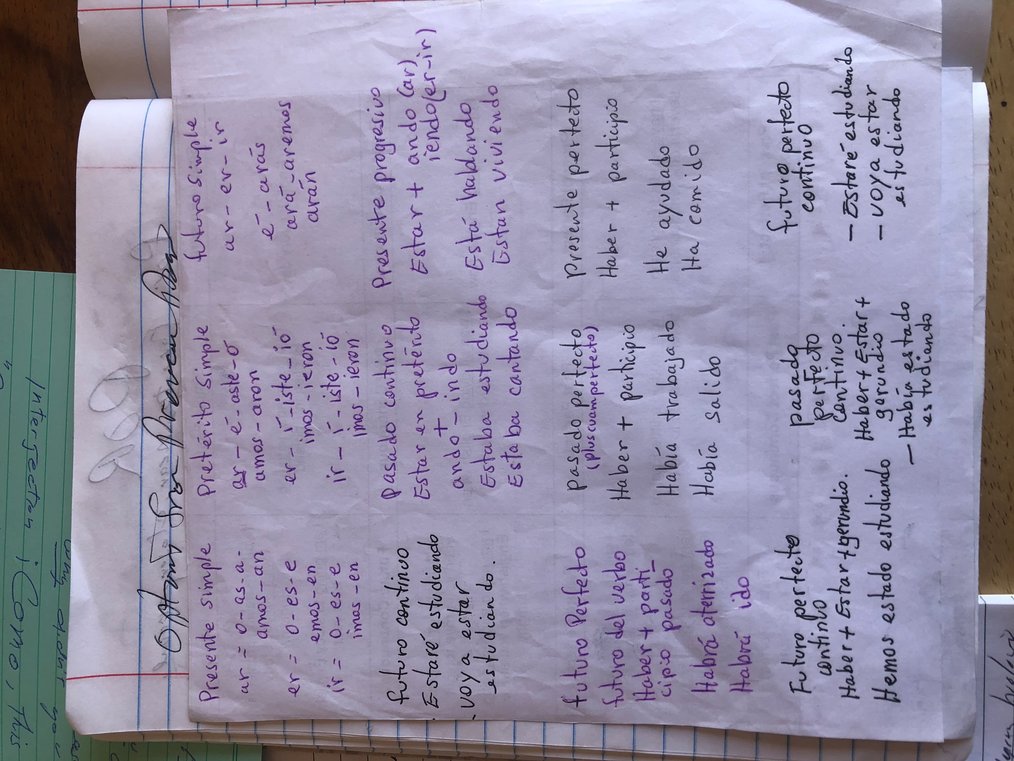 Presente simple
ar = o-as-a-
amos-an
er = o-es-e
emos-en
ir = o-es-e
imos-en
Pretérito simple
ar-é-aste-ó
amos-aron
er-í-iste-ió
imos-ieron
ir-í-iste-ió
imos-ieron
futuro simple
ar-er-ir
é-arás
ará-aremos
arán
futuro continuo
Estaré estudiando
voy a estar
estudiando.
Pasado continuo
Estar en pretérito
+
ando-indo
Estaba estudiando
Estaba cantando
Presente progresivo
Estar + ando (ar)
iendo (er-ir)
Está hablando
Están viviendo
futuro Perfecto
futuro del verbo
Haber + parti_
cipio pasado
Habrá aterrizado
Habrá ido
pasado perfecto
(pluscuamperfecto)
Haber + participio
Había trabajado
Había salido
presente perfecto
Haber + participio
He ayudado
Ha comido
Futuro perfecto
continuo
Haber + Estar + gerundio.
Hemos estado estudiando
pasado
perfecto
continuo.
Haber + Estar +
gerundio
- Había estado
estudiando
futuro perfecto
continuo
- Estaré estudiando
- voy a estar
estudiando